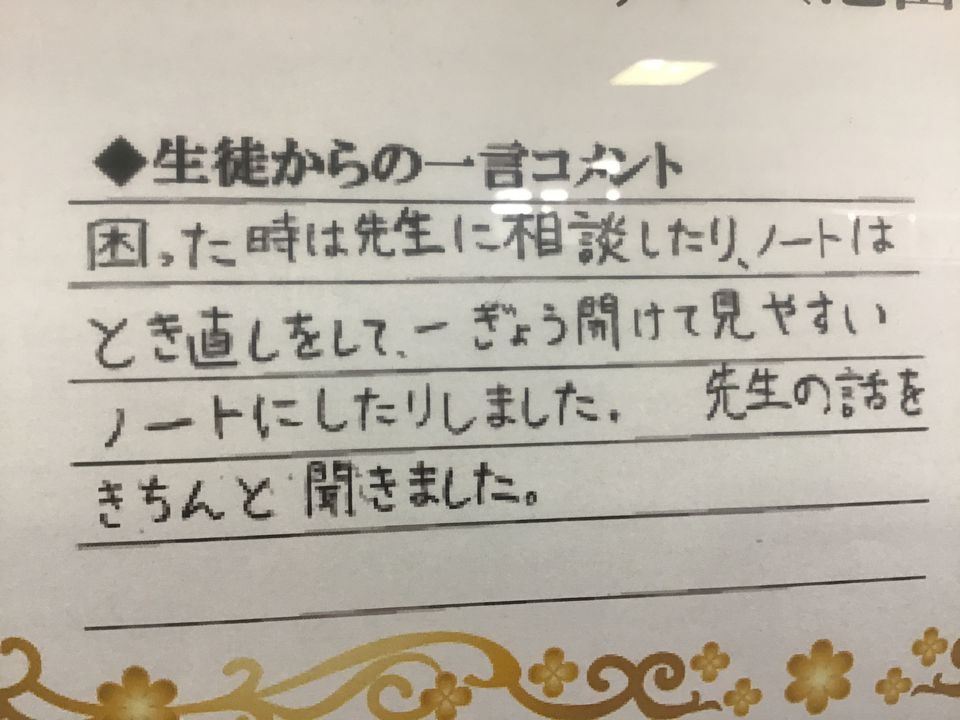 ◆生徒からの一言コメント
困った時は先生に相談したり、ノートは
とき直しをして、一ぎょう開けて見やすい
ノートにしたりしました。 先生の話を
きちんと聞きました。